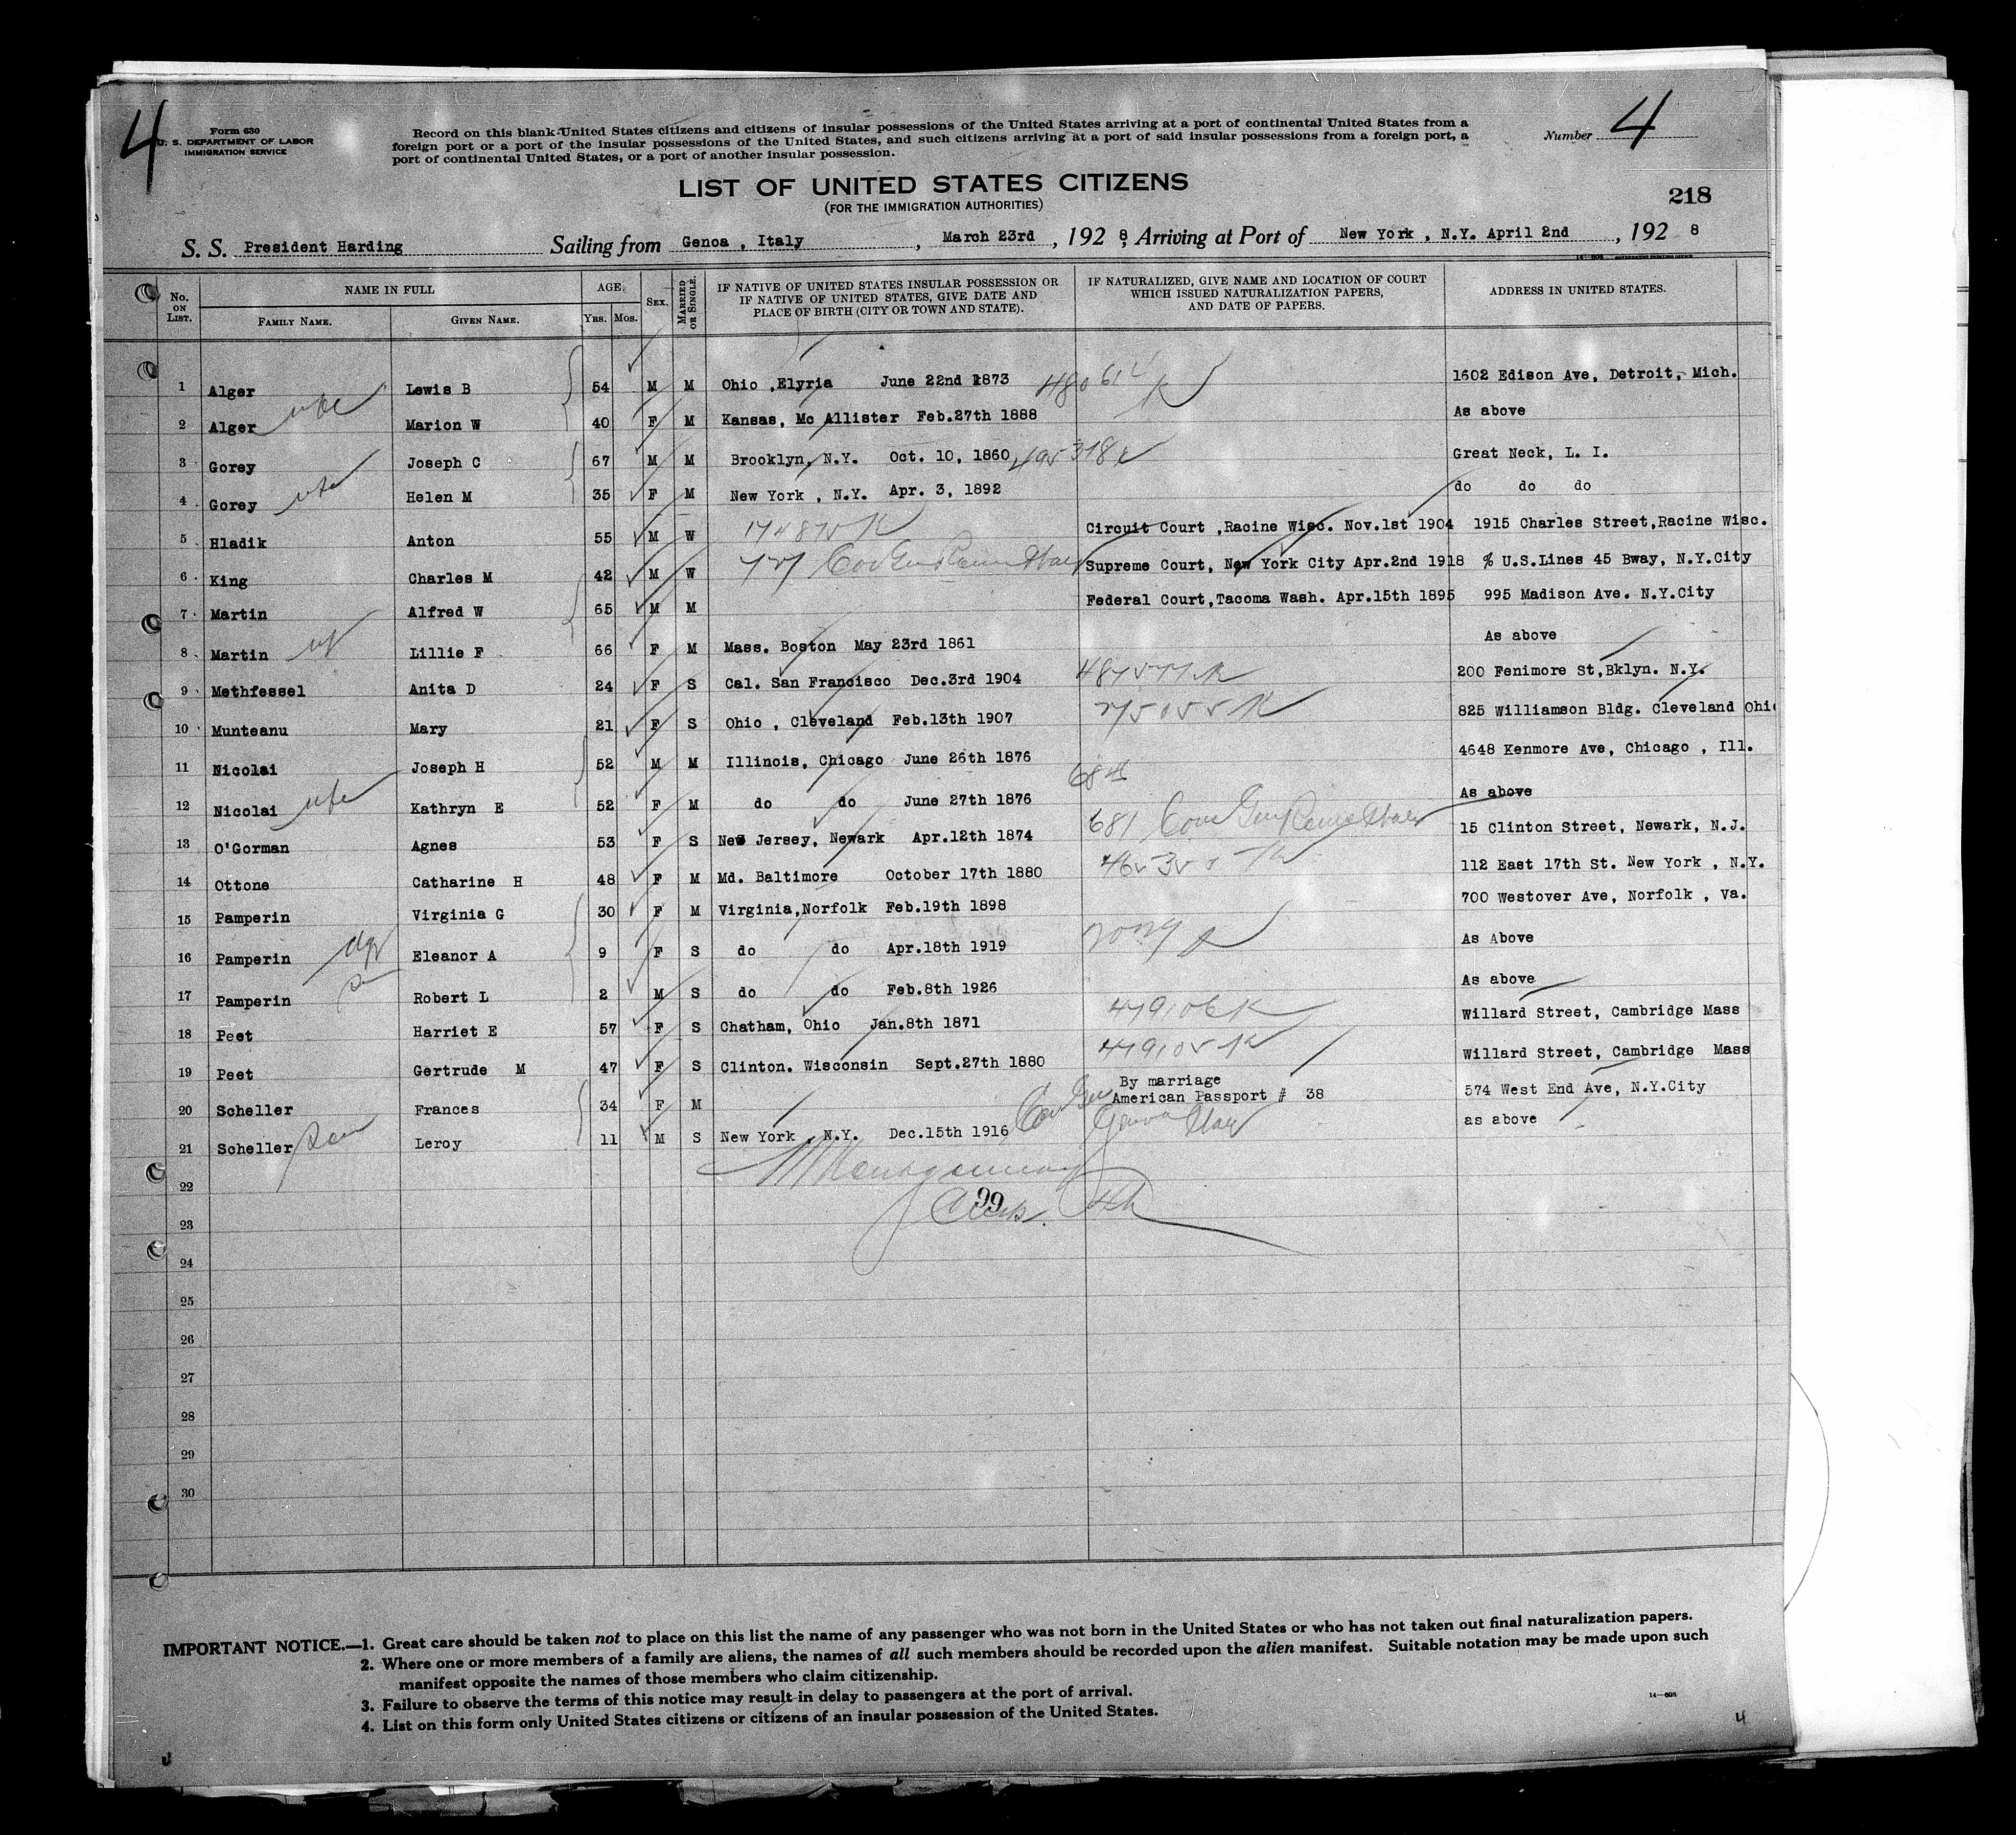 4
Form 630
U. S. DEPARTMENT OF LABOR
IMMIGRATION SERVICE
Record on this blank United States citizens and citizens of insular possessions of the United States arriving at a port of continental United States from a
foreign port or a port of the insular possessions of the United States, and such citizens arriving at a port of said insular possessions from a foreign port, a
port of continental United States, or a port of another insular possession.
Number 4
LIST OF UNITED STATES CITIZENS
(FOR THE IMMIGRATION AUTHORITIES)
218
S. S. President Harding Sailing from Genoa , Italy , March 23rd , 192 8, Arriving at Port of New York , N.Y. April 2nd , 192 8
No. ON LIST. NAME IN FULL AGE. SEX. MARRIED OR SINGLE. IF NATIVE OF UNITED STATES INSULAR POSSESSION OR IF NATIVE OF UNITED STATES, GIVE DATE AND PLACE OF BIRTH (CITY OR TOWN AND STATE). IF NATURALIZED, GIVE NAME AND LOCATION OF COURT WHICH ISSUED NATURALIZATION PAPERS, AND DATE OF PAPERS. ADDRESS IN UNITED STATES.
FAMILY NAME. GIVEN NAME. YRS. MOS.
1 Alger Lewis B 54 M M Ohio ,Elyria June 22nd 1873 1602 Edison Ave, Detroit, Mich.
2 Alger wife Marion W 40 F M Kansas, Mc Allister Feb.27th 1888 As above
3 Gorey Joseph C 67 M M Brooklyn, N.Y. Oct. 10, 1860 495318 K Great Neck, L. I.
4 Gorey wife Helen M 35 F M New York , N.Y. Apr. 3, 1892 do do do
5 Hladik Anton 55 M W Circuit Court ,Racine Wisc. Nov.1st 1904 1915 Charles Street,Racine Wisc.
6 King Charles M 42 M W Supreme Court, New York City Apr.2nd 1918 % U.S.Lines 45 Bway, N.Y.City
7 Martin Alfred W 65 M M Federal Court,Tacoma Wash. Apr.15th 1895 995 Madison Ave. N.Y.City
8 Martin Lillie F 66 F M Mass. Boston May 23rd 1861 As above
9 Methfessel Anita D 24 F S Cal. San Francisco Dec.3rd 1904 200 Fenimore St,Bklyn. N.Y.
10 Munteanu Mary 21 F S Ohio , Cleveland Feb.13th 1907 825 Williamson Bldg. Cleveland Ohio
11 Nicolai Joseph H 52 M M Illinois, Chicago June 26th 1876 4648 Kenmore Ave, Chicago , Ill.
12 Nicolai wife Kathryn E 52 F M do do June 27th 1876 As above
13 O'Gorman Agnes 53 F S New Jersey, Newark Apr.12th 1874 681 15 Clinton Street, Newark, N.J.
14 Ottone Catharine H 48 F M Md. Baltimore October 17th 1880 112 East 17th St. New York , N.Y.
15 Pamperin Virginia G 30 F M Virginia,Norfolk Feb.19th 1898 700 Westover Ave, Norfolk , Va.
16 Pamperin Eleanor A 9 F S do do Apr.18th 1919 As Above
17 Pamperin Robert L 2 M S do do Feb.8th 1926 As above
18 Peet Harriet E 57 F S Chatham, Ohio Jan.8th 1871 479106 K Willard Street, Cambridge Mass
19 Peet Gertrude M 47 F S Clinton. Wisconsin Sept.27th 1880 479105 K Willard Street, Cambridge Mass
20 Scheller Frances 34 F M By marriage American Passport # 38 574 West End Ave, N.Y.City
21 Scheller Leroy 11 M S New York , N.Y. Dec.15th 1916 as above
22
99
23
24
25
26
27
28
29
30
IMPORTANT NOTICE.—1. Great care should be taken not to place on this list the name of any passenger who was not born in the United States or who has not taken out final naturalization papers.
2. Where one or more members of a family are aliens, the names of all such members should be recorded upon the alien manifest. Suitable notation may be made upon such
manifest opposite the names of those members who claim citizenship.
3. Failure to observe the terms of this notice may result in delay to passengers at the port of arrival.
4. List on this form only United States citizens or citizens of an insular possession of the United States.
14—608
4